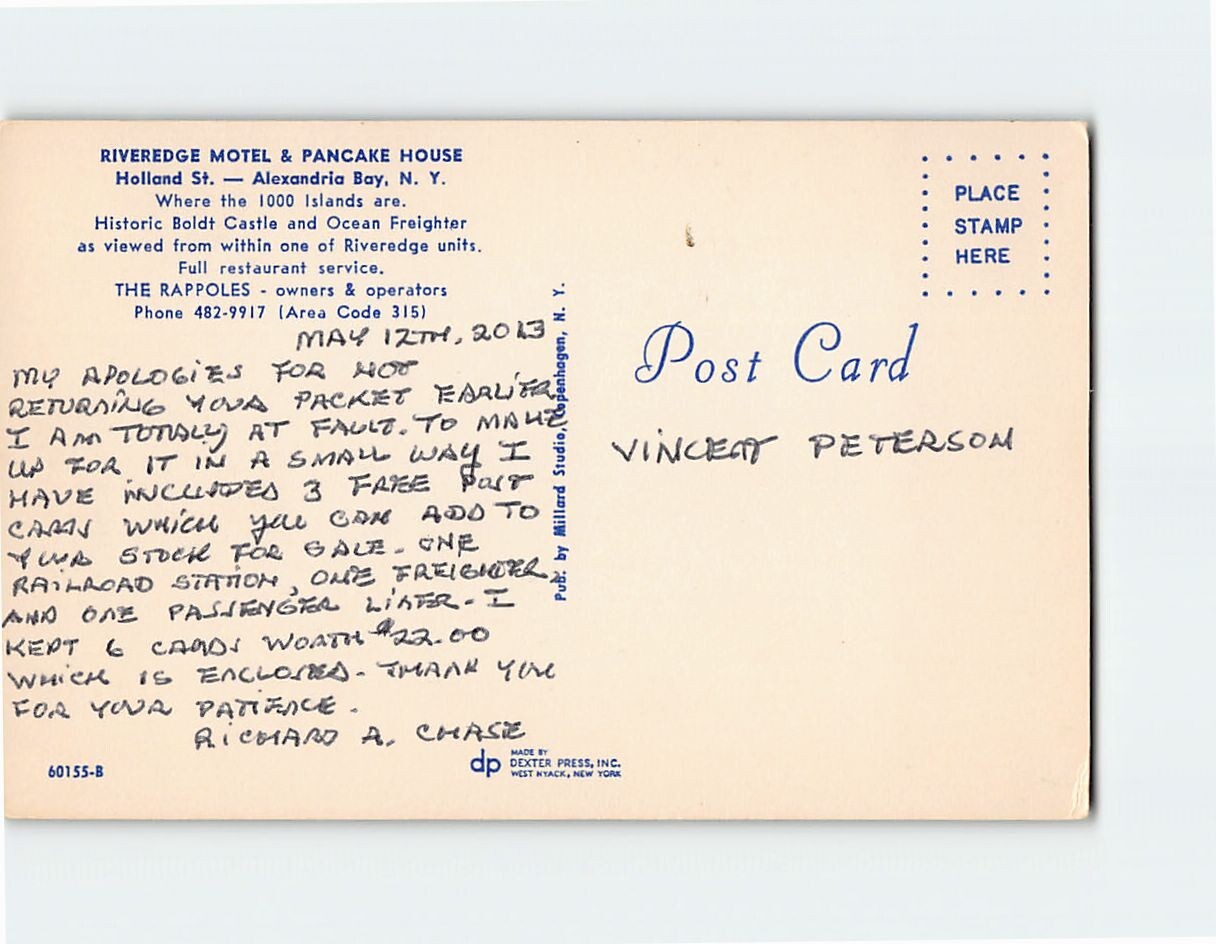 RIVEREDGE MOTEL & PANCAKE HOUSE
Holland St. — Alexandria Bay, N. Y.
Where the 1000 Islands are.
Historic Boldt Castle and Ocean Freighter
as viewed from within one of Riveredge units.
Full restaurant service.
THE RAPPOLES - owners & operators
Phone 482-9917 (Area Code 315)
MAY 12TH, 2013
MY APOLOGIES FOR NOT
RETURNING YOUR PACKET EARLIER.
I AM TOTALLY AT FAULT. TO MAKE
UP FOR IT IN A SMALL WAY I
HAVE INCLUDED 3 FREE POST
CARDS WHICH YOU CAN ADD TO
YOUR STOCK FOR SALE. ONE
RAILROAD STATION, ONE FREIGHTER,
AND ONE PASSENGER LINER. I
KEPT 6 CARDS WORTH $22.00
WHICH IS ENCLOSED. THANK YOU
FOR YOUR PATIENCE.
RICHARD A. CHASE
60155-B
dp MADE BY
DEXTER PRESS, INC.
WEST NYACK, NEW YORK
Pub. by Millard Studio, Copenhagen, N. Y.
PLACE
STAMP
HERE
Post Card
VINCENT PETERSON